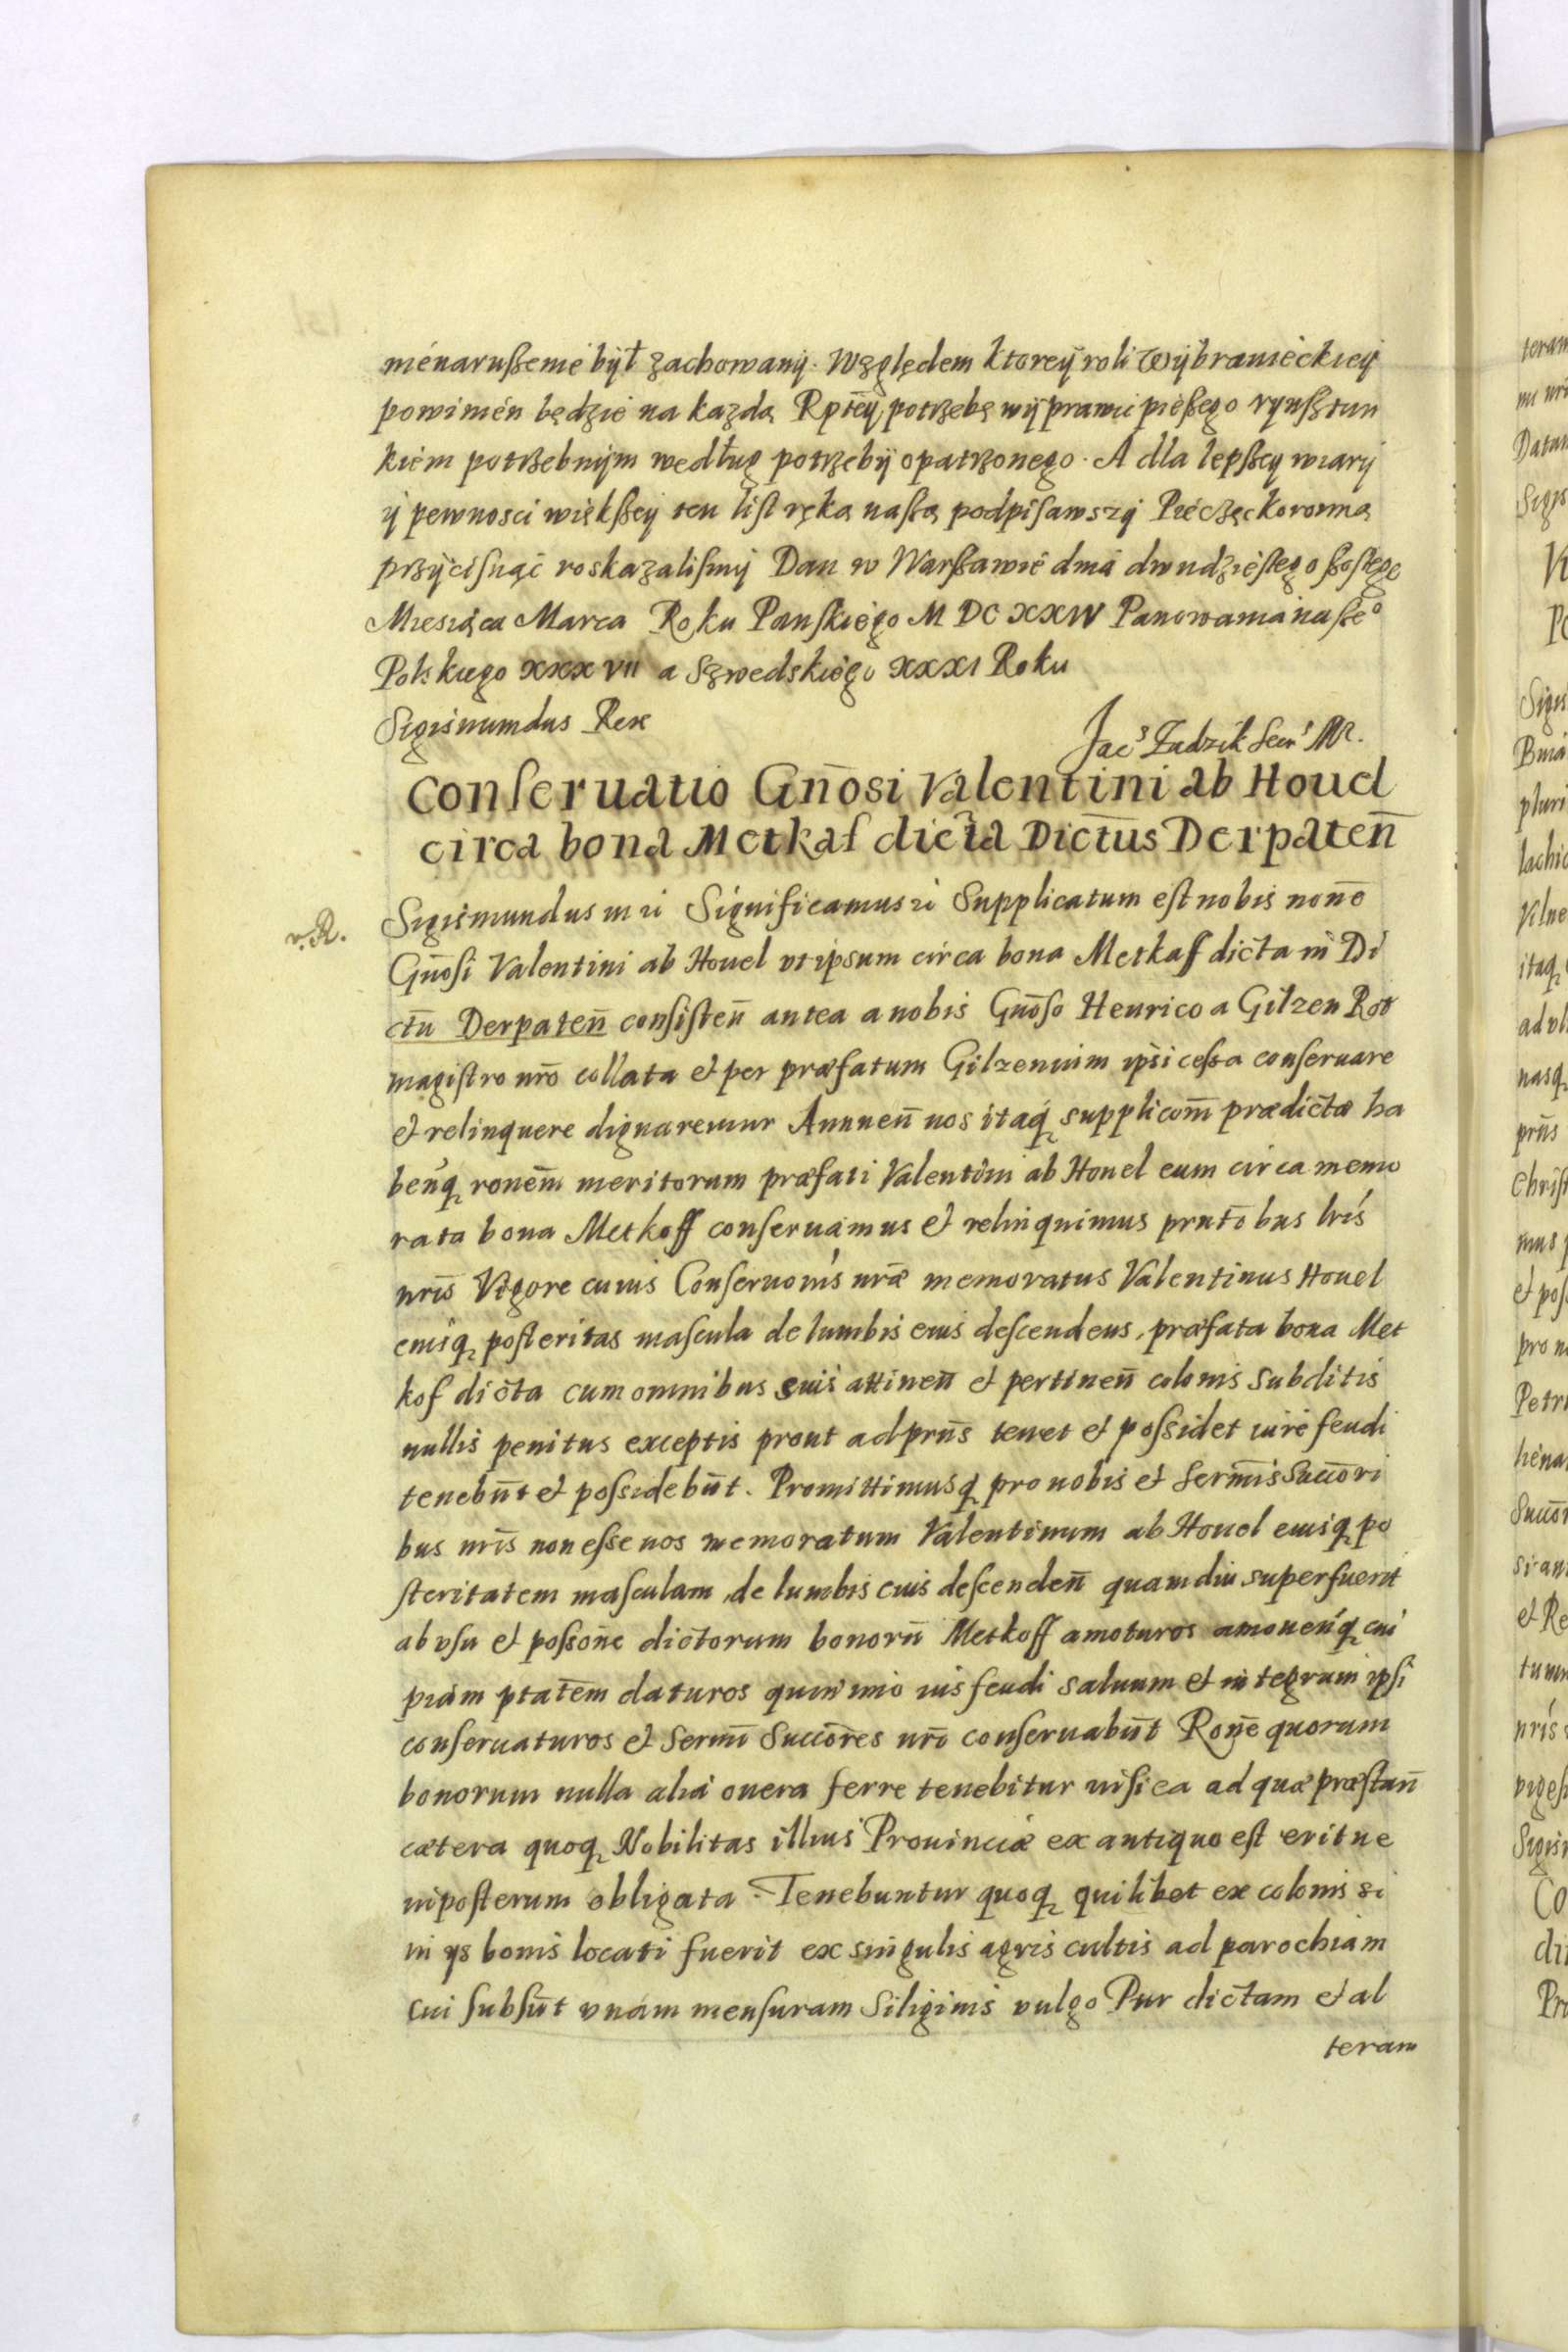 nienarußenie był zachowany. Względem ktorey roli Wybranieckiey
powinien będzie na kazdą Rptey potrzebę wyprawic pießego rynßtun
kiem potrzebnym według potrzeby opatrzonego. A dla lepßey wiary
y pewnosci więkßey ten list ręką naßą podpisawszy Pieczęc koronną
przycisnąc roskazalismy Dan w Warßawie dnia dwudziestego ßostego
Miesiąca Marca Roku Panskiego M DC XXIV Panowania naßeº
Polskiego XXXVII a Szwedskiego XXXI Roku
Sigismundus Rex
Jacˢ Zadzik Secrˢ MR.
Conseruatio Gnōsi Valentini ab Houel
circa bona Metkaf dicta Dictūs Derpaten̄
v. R.
Sigismundus III ri Significamus ri Supplicatum est nobis noīne
Gnōsi Valentini ab Houel vt ipsum circa bona Metkaff dicta in Di
ctū Derpaten̄ consisten̄ antea a nobis Gnōso Henrico a Gilzen Rot
magistro nrō collata et per præfatum Gilzenium ipsi cessa conseruare
et relinquere dignaremur Annuen̄ nos itaq̨ supplicōm̄ prædictæ ha
ben̄q̨ ronem̄ meritorum præfati Valentini ab Houel eum circa memo
rata bona Metkoff conseruamus et relinquimus prntībus lrīs
nrīs Vigore cuius Conseruonīs nrǣ memoratus Valentinus Houel
eiusq̨ posteritas mascula de lumbis eius descendens, præfata bona Met
kof dicta cum omnibus suis attinen̄ et pertinen̄ colonis subditis
nullis penitus exceptis prout ad prn̄s tenet et possidet iure feudi
tenebūt et possidebūt. Promittimusq̨ pro nobis et Sermīs Succōri
bus nrīs non esse nos memoratum Valentinum ab Houel eiusq̨ po
steritatem masculam de lumbis eius descenden̄ quamdiu superfuerit
ab vsu et possone dictorum bonorū Metkoff amoturos amouen̄q̨ cui
piam ptātem daturos quinimo ius feudi saluum et integrum ipsi
conseruaturos et Sermī Succōres nrī conseruabūt Rone quorum
bonorum nulla alia onera ferre tenebitur nisi ea ad quæ præstan̄
cætera quoq̨ Nobilitas illius Prouinciæ ex antiquo est erit ne
inposterum obligata. Tenebuntur quoq̨ quilibet ex colonis si
in ys bonis locati fuerit ex singulis agris cultis ad parochiam
cui subsūt vnam mensuram Siliginis vulgo Pur dictam et al
teram